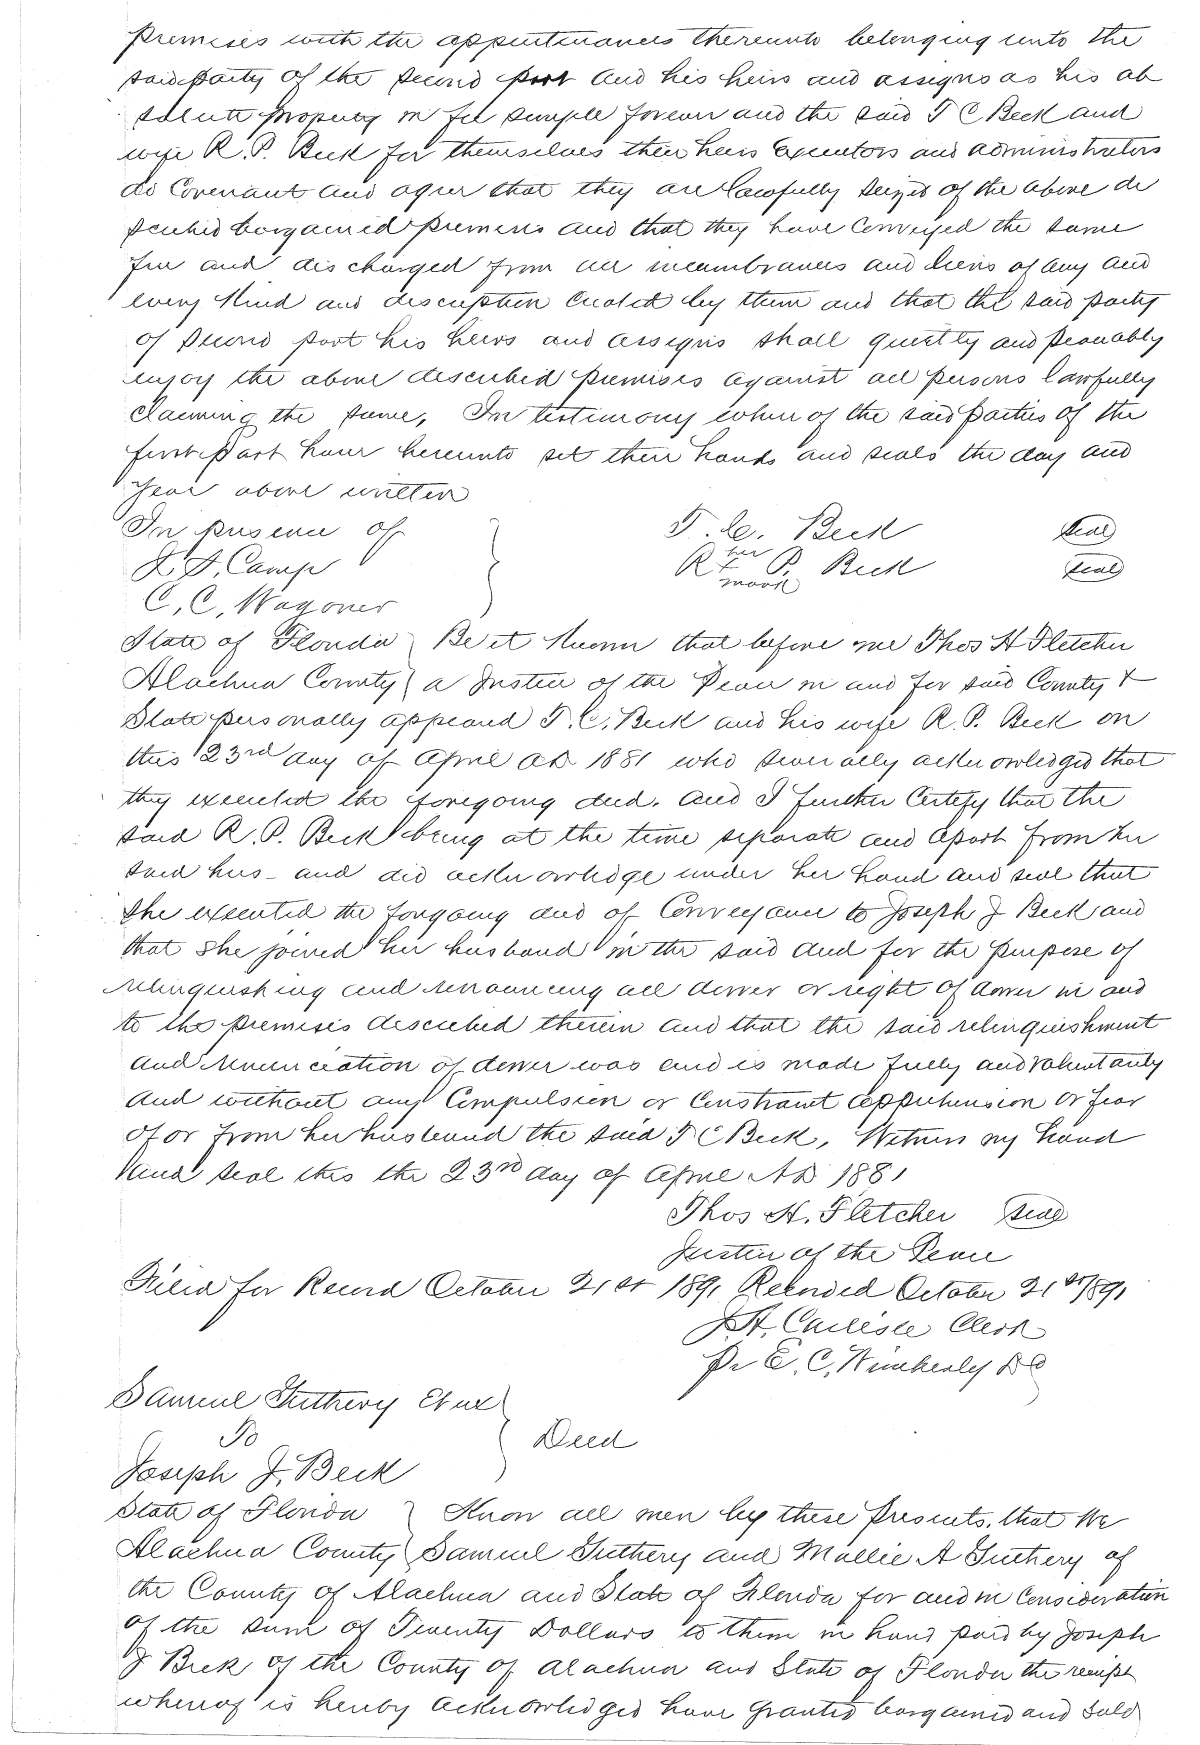 premises with the appurtenances thereunto belonging unto the
said party of the second part and his heirs and assigns as his ab
solute property in fee simple forever and the said T C Beck and
wife R. P. Beck for themselves their heirs executors and administrators
do Covenant and agree that they are lawfully seized of the above de
scribed bargained premises and that they have Conveyed the same
free and discharged from all incumbrances and liens of any and
every kind and description created by them and that the said party
of second part his heirs and assigns shall quietly and peaceably
enjoy the above described premises against all persons lawfully
claiming the same, In testimony where of the said parties of the
first part have hereunto set their hands and seals the day and
year above written
In presence of } T. C. Beck seal
J. D. Camp R. her x mark P. Beck seal
C, C, Wagoner
State of Florida } Be it known that before me Thos H Fletcher
Alachua County } a Justice of the Peace in and for said County &
State personally appeared T. C. Beck and his wife R. P. Beck on
this 23rd day of April AD 1881 who severally acknowledged that
they executed the foregoing deed. and I further Certify that the
said R. P. Beck being at the time separate and apart from her
said hus- and did acknowledge under her hand and seal that
She executed the forgoing deed of Conveyance to Joseph J Beck and
that She joined her husband in the said deed for the purpose of
relinquishing and renouncing all dower or right of dower in and
to the premises described therein and that the said relinquishment
and renunciation of dower was and is made freely and voluntarily
and without any Compulsion or Constraint apprehension or fear
of or from her husband the said T C Beck, Witness my hand
and seal this the 23rd day of April AD 1881
Thos H. Fletcher seal
Justice of the Peace
Filed for Record October 21st 1891 Recorded October 21st 1891
J. A. Carlisle Clerk
Pr E. C. Wimberly DC
Samuel Suthery Et ux }
To } Deed
Joseph J. Beck
State of Florida } Know all men by these Presents, that We
Alachua County } Samuel Suthery and Mollie A Suthery of
the County of Alachua and State of Florida for and in Consideration
of the sum of Twenty Dollars to them in hand paid by Joseph
J Beck of the County of Alachua and State of Florida the receipt
whereof is hereby acknowledged have granted bargained and sold